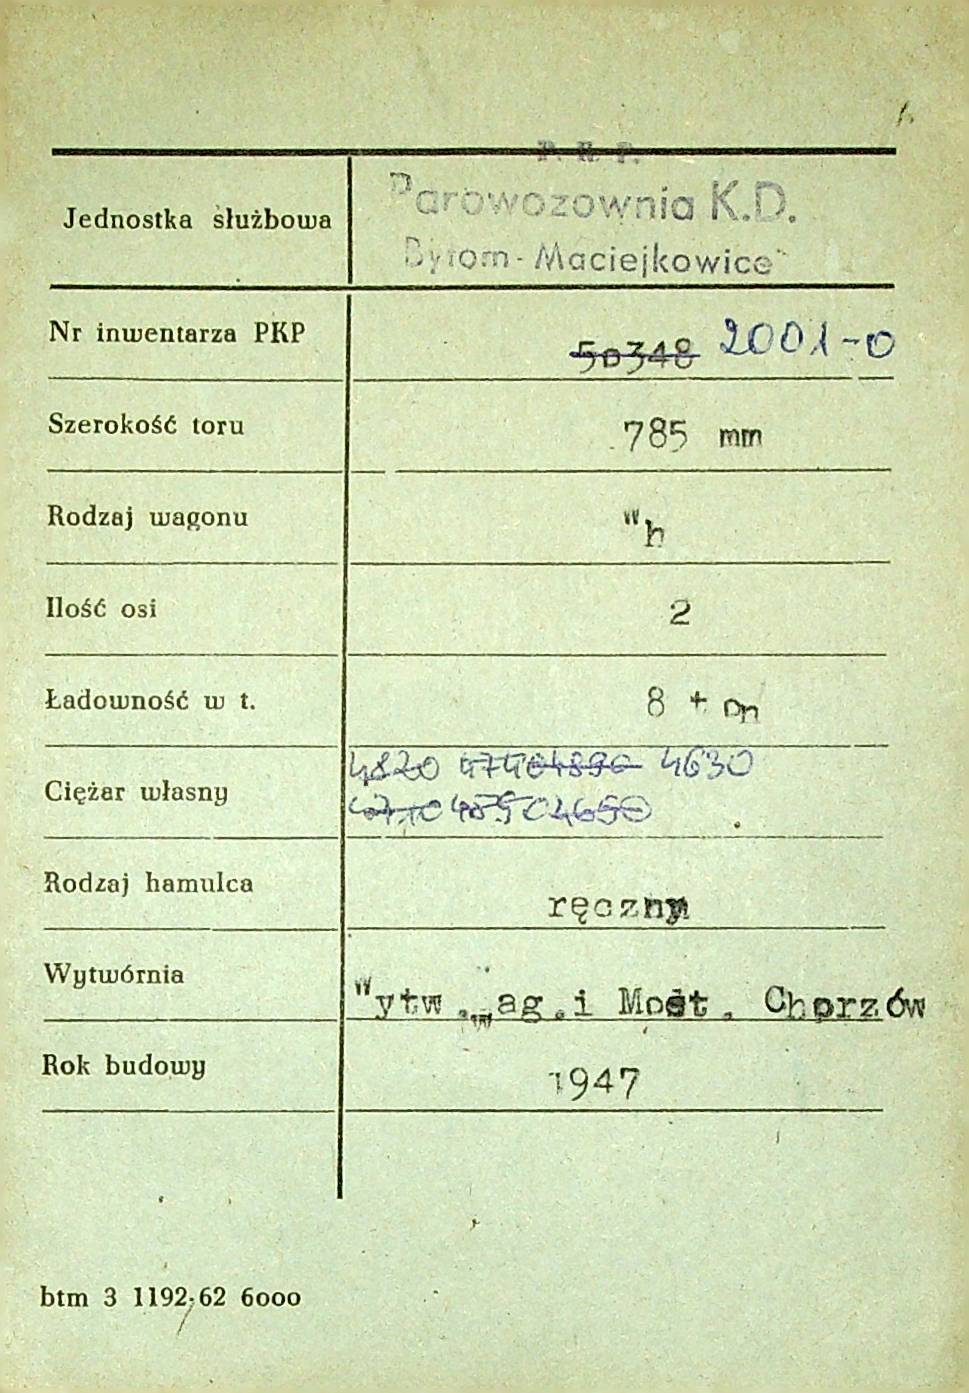 P. K. P.
Jednostka służbowa Parowozownia K.D.
Bytom - Maciejkowice
Nr inwentarza PKP 50348 2001-0
Szerokość toru 785 mm
Rodzaj wagonu Wh
Ilość osi 2
Ładowność w t. 8 ton
4820 4740 4890 4630
Ciężar własny
4710 4650
Rodzaj hamulca ręczny
Wytwórnia Wytw.Wag.i Most. Chorzów
Rok budowy 1947
btm 3 1192-62 6000